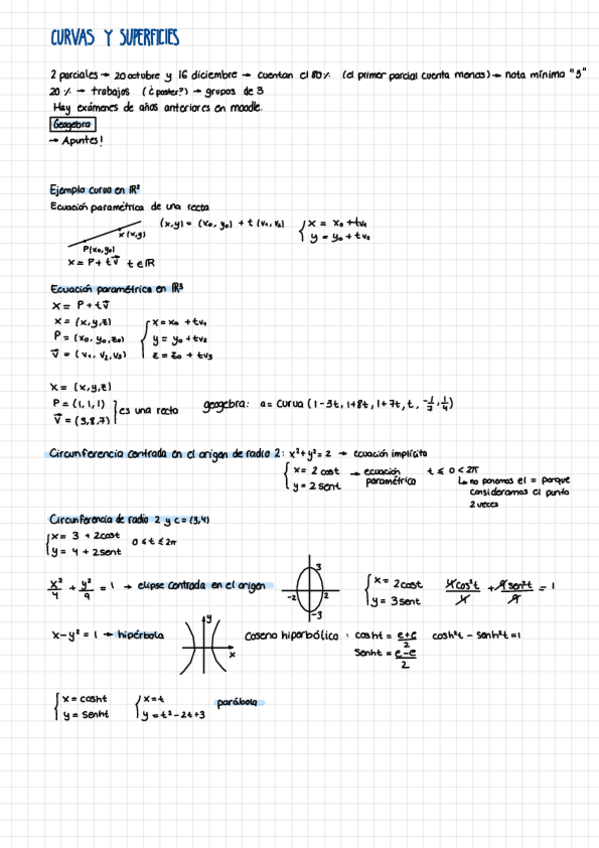 CURVAS Y SUPERFICIES
2 parciales → 20 octubre y 16 diciembre → cuentan el 80% (el primer parcial cuenta menos) → nota mínima "3"
20% → trabajos (¿poster?) → grupos de 3
Hay exámenes de años anteriores en moodle.
Geogebra
→ Apuntes!
Ejemplo curva en ℝ²
Ecuación paramétrica de una recta
(x,y) = (x₀, y₀) + t (v₁, v₂) { x = x₀ + tv₁
y = y₀ + tv₂
x(x,y)
P(x₀,y₀)
x = P + tv⃗ t∈ℝ
Ecuación paramétrica en ℝ³
x = P + tv⃗
x = (x,y,z) { x = x₀ + tv₁
P = (x₀, y₀, z₀) y = y₀ + tv₂
v⃗ = (v₁, v₂, v₃) z = z₀ + tv₃
x = (x,y,z)
P = (1,1,1) } es una recta geogebra: a = curva (1-3t, 1+8t, 1+7t, t, -1/7, 1/4)
v⃗ = (3,8,7)
Circunferencia centrada en el origen de radio 2: x²+y²=2 → ecuación implícita
{ x = 2 cost → ecuación paramétrica t ≤ 0 < 2π
y = 2 sent
↳ no ponemos el = porque
consideramos el punto
2 veces
Circunferencia de radio 2 y c = (3,4)
{ x = 3 + 2cost 0 ≤ t ≤ 2π
y = 4 + 2sent
x²/4 + y²/9 = 1 → elipse centrada en el origen 3 -2 2 -3 { x = 2cost 4cos²t/4 + 9sen²t/9 = 1
y = 3sent
x-y² = 1 → hipérbola y x Coseno hiperbólico: cosht = e+e/2 cosh²t - senh²t = 1
senht = e-e/2
{ x = cosht { x = t parábola
y = senht y = t²-2t+3